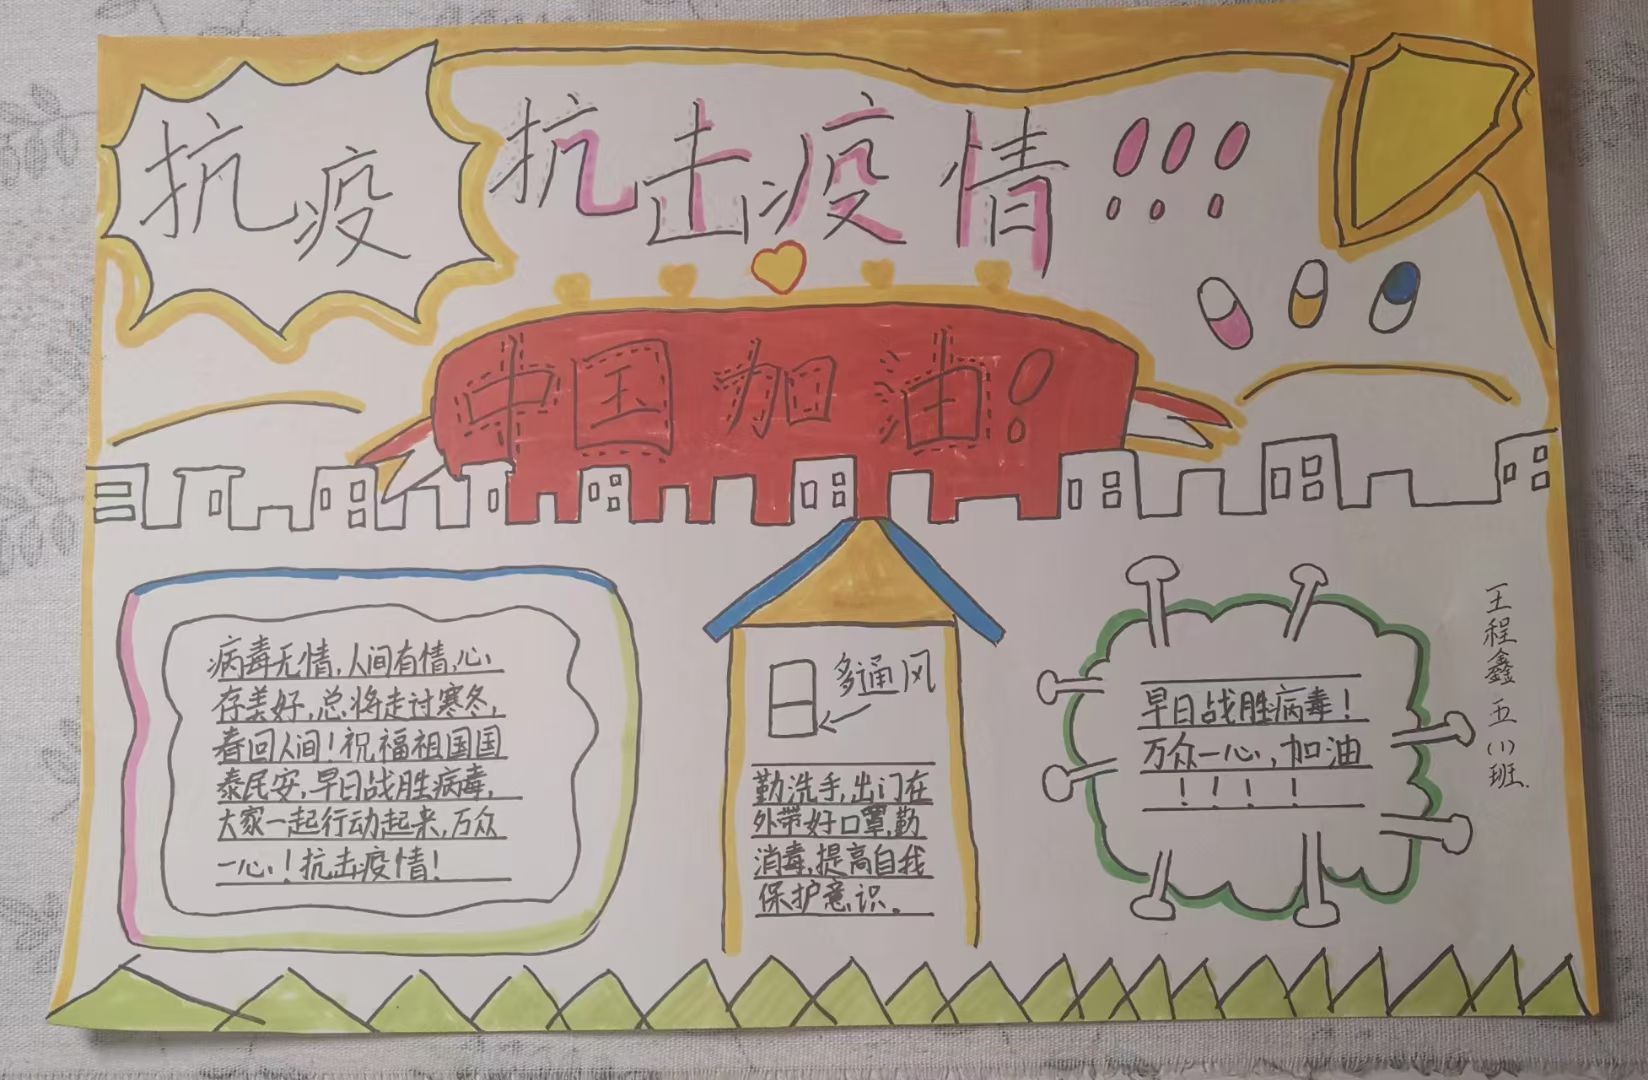 抗疫
抗击疫情!!!
中国加油!
病毒无情,人间有情,心
存美好,总将走过寒冬,
春回人间!祝福祖国国
泰民安,早日战胜病毒,
大家一起行动起来,万众
一心!抗击疫情!
多通风
勤洗手,出门在
外带好口罩,勤
消毒,提高自我
保护意识。
早日战胜病毒!
万众一心,加油
!!!!
王程鑫 五(1)班